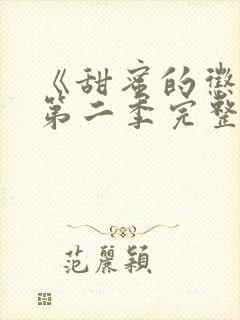 《甜蜜的懲
第二季完整
范麗穎